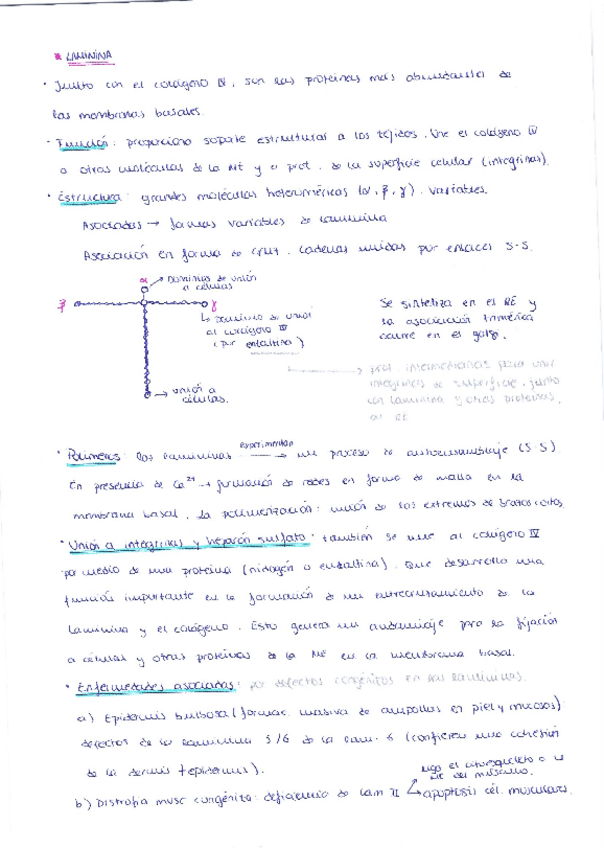 * LAMININA
· Junto con el colágeno IV, son las proteínas más abundantes de
las membranas basales.
· Función: proporciona soporte estructural a los tejidos. Une el colágeno IV
a otras moléculas de la ME y a prot. de la superficie celular (integrinas).
· Estructura: grandes moléculas heterotriméricas (α, β, γ). Variables.
Asociadas → formas variables de laminina
Asociación en forma de cruz. Cadenas unidas por enlaces S-S.
α → Dominios de unión a células
β
γ
↳ Dominio de unión
al colágeno IV
(por entactina)
→ unión a
células.
Se sintetiza en el RE y
la asociación trimérica
ocurre en el golgi.
→ prot. intermediarias para unir
integrinas de superficie, junto
con laminina y otras proteínas,
al RE
· Polímeros: las lamininas experimentan → un proceso de autoensamblaje (S-S).
En presencia de Ca²⁺ → formación de redes en forma de malla en la
membrana basal. La polimerización: unión de los extremos de brazos cortos.
· Unión a integrinas y heparán sulfato: también se une al colágeno IV
por medio de una proteína (nidogén o entactina). Que desarrolla una
función importante en la formación de un entrecruzamiento de la
laminina y el colágeno. Esto genera un andamiaje para la fijación
a células y otras proteínas de la ME en la membrana basal.
· Enfermedades asociadas: por defectos congénitos en las lamininas.
a) Epidermis bullosa (formac. masiva de ampollas en piel y mucosas):
defectos de la laminina 5/6 de la lam. 6 (confieren una cohesión
de la dermis + epidermis).
b) Distrofia musc congénita: deficiencia de lam II
liga el citoesqueleto a la
ME del músculo.
↳ apoptosis cél. musculares.